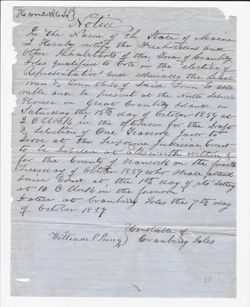 Hancock SS
Notice
In the Name of the State of Maine
I hereby notify the Freeholders and
other Inhabitants of the Town of Cranberry
Isles qualified to vote in the Election of
Representatives and especially the Select
men & Town Clerk of said Town to asse
mble and be present at the
House on Great Cranberry Island on
Saturday the 15th day of October 1859 at
2 O Clock in the afternoon for the Draft
& Selection of One Traverse Juror to
serve at the Supreme Judicial Court
to be holden at Ellsworth within &
for the County of Hancock on the fourth
Tuesday of October 1859 who shall attend
said Court at the 1st day of its setting
at 10 O Clock in the forenoon
Dated at Cranberry Isles the 7th day
of October 1859
William P
Constable of
Cranberry Isles